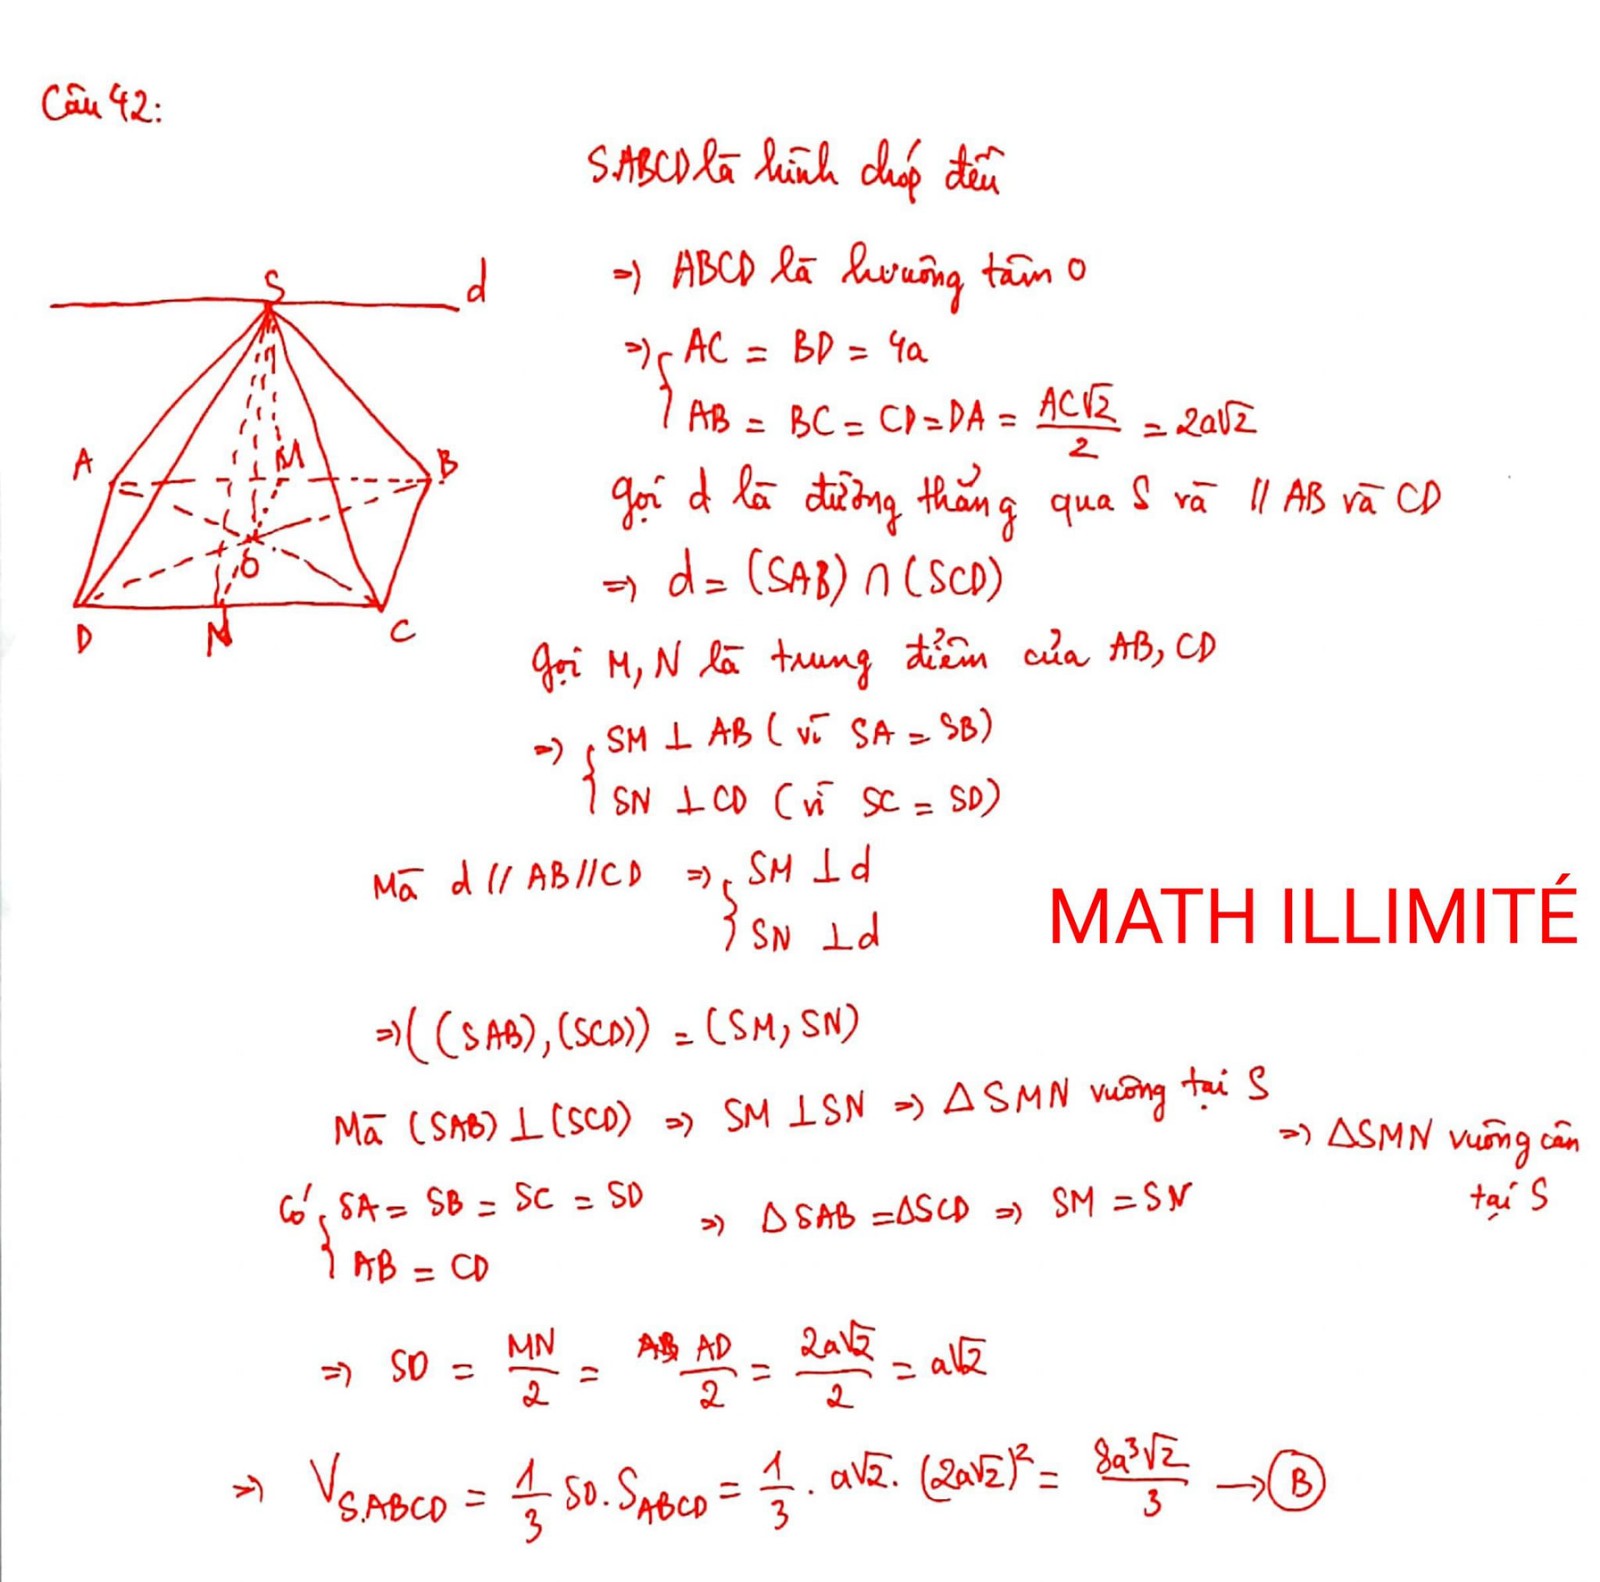 Câu 42:
S.ABCD là hình chóp đều
⇒ ABCD là hvuông tâm O
⇒ { AC = BD = 4a
AB = BC = CD = DA = \frac{AC√2}{2} = 2a√2
Gọi d là đường thẳng qua S và // AB và CD
⇒ d = (SAB) ∩ (SCD)
Gọi M, N là trung điểm của AB, CD
⇒ { SM ⊥ AB (vì SA = SB)
SN ⊥ CD (vì SC = SD)
Mà d // AB // CD ⇒ { SM ⊥ d
SN ⊥ d
MATH ILLIMITÉ
⇒ ((SAB), (SCD)) = (SM, SN)
Mà (SAB) ⊥ (SCD) ⇒ SM ⊥ SN ⇒ Δ SMN vuông tại S
⇒ ΔSMN vuông cân
tại S
Có { SA = SB = SC = SD
AB = CD
⇒ Δ SAB = ΔSCD ⇒ SM = SN
⇒ SO = \frac{MN}{2} = \frac{AD}{2} = \frac{2a√2}{2} = a√2
⇒ V_{S.ABCD} = \frac{1}{3} SO. S_{ABCD} = \frac{1}{3} . a√2. (2a√2)² = \frac{8a³√2}{3} → B
S
d
A
M
B
O
D
N
C